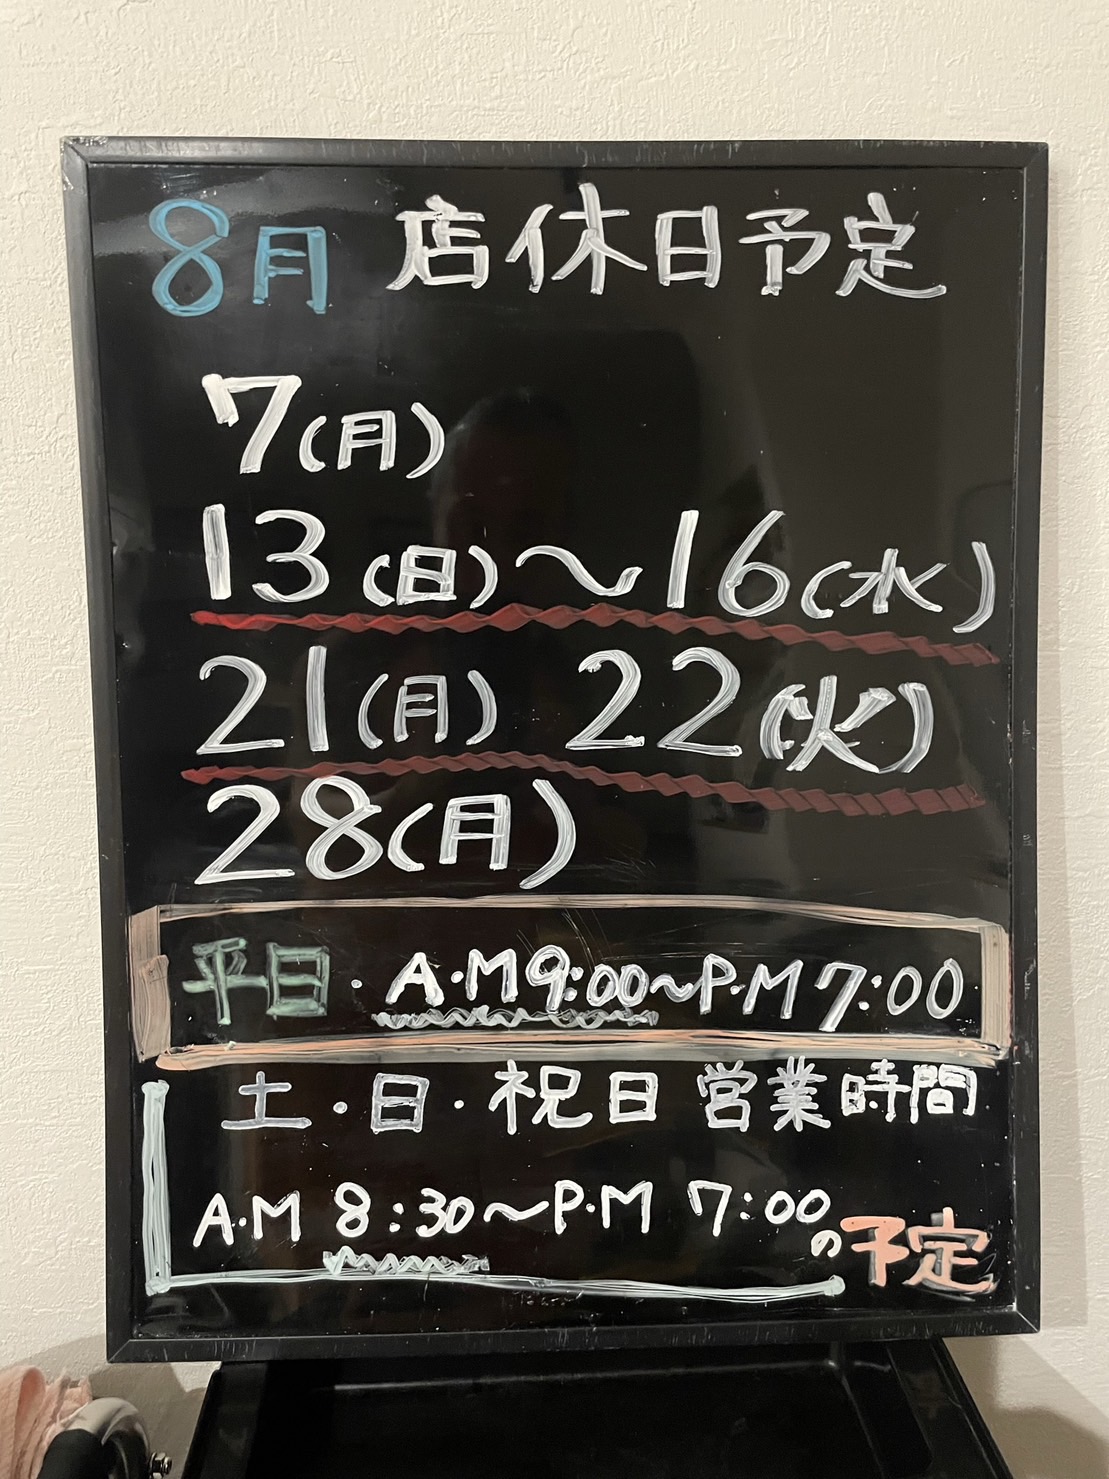 8月 店休日予定
7(月)
13(日)〜16(水)
21(月) 22(火)
28(月)
平日・A・M9:00〜P・M7:00
土・日・祝日 営業時間
A・M 8:30〜P・M 7:00の予定